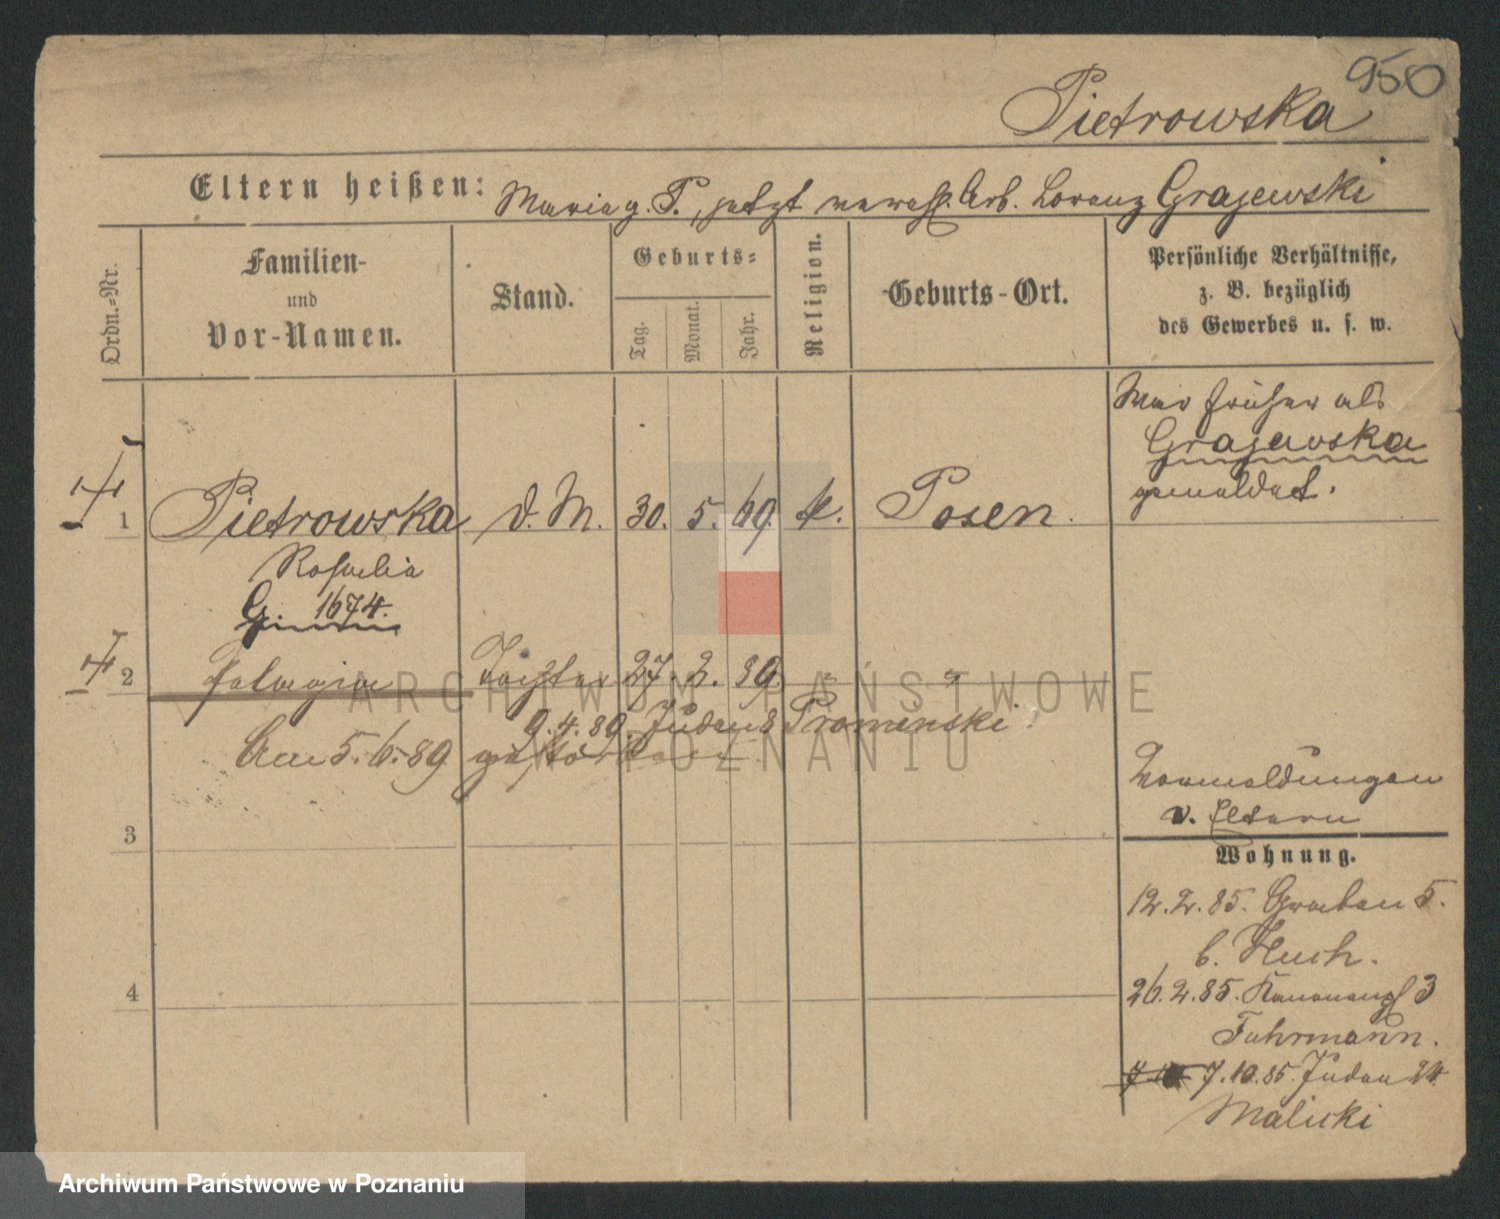 950
Pietrowska
Eltern heißen: Marie g. P., jetzt verehl. Arb. Lorenz Grajewski
Ordn.=Nr.
Familien-
und
Vor-Namen.
Stand.
Geburts=
Tag.
Monat.
Jahr.
Religion.
Geburts-Ort.
Persönliche Verhältnisse,
z. B. bezüglich
des Gewerbes u. s. w.
War früher als
Grajewska
gemeldet.
1 Pietrowska d. M. 30. 5. 69. k. Posen.
Rosalia
G. 1674.
2 Pelagia Tochter 27. 2. 89. " "
9.4.89. Juden 8 Promenski
Am 5.6.89 gestorben
3
4
Vormeldungen
v. Eltern
Wohnung.
12.2.85. Graben 5.
b. Huch.
26.2.85. Kanonenpl 3
Fuhrmann.
7.10.85. Juden 24.
Malicki
ARCHIWUM PAŃSTWOWE
W POZNANIU
Archiwum Państwowe w Poznaniu